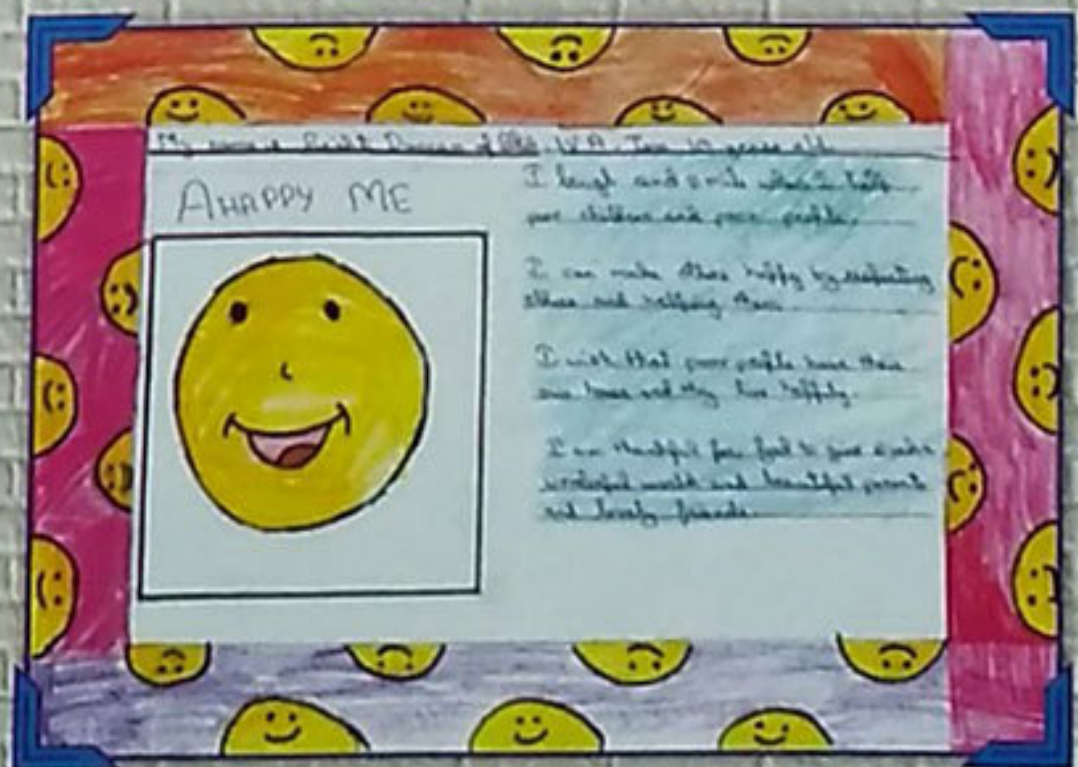 My name is IV A. I am 10 years old
A HAPPY ME
I laugh and smile when I help
poor children and poor people.
I can make others happy by respecting
others and helping them.
I wish that poor people have their
own house and they live happily.
I am thankful for God to give such a
wonderful world and beautiful parents
and lovely friends.